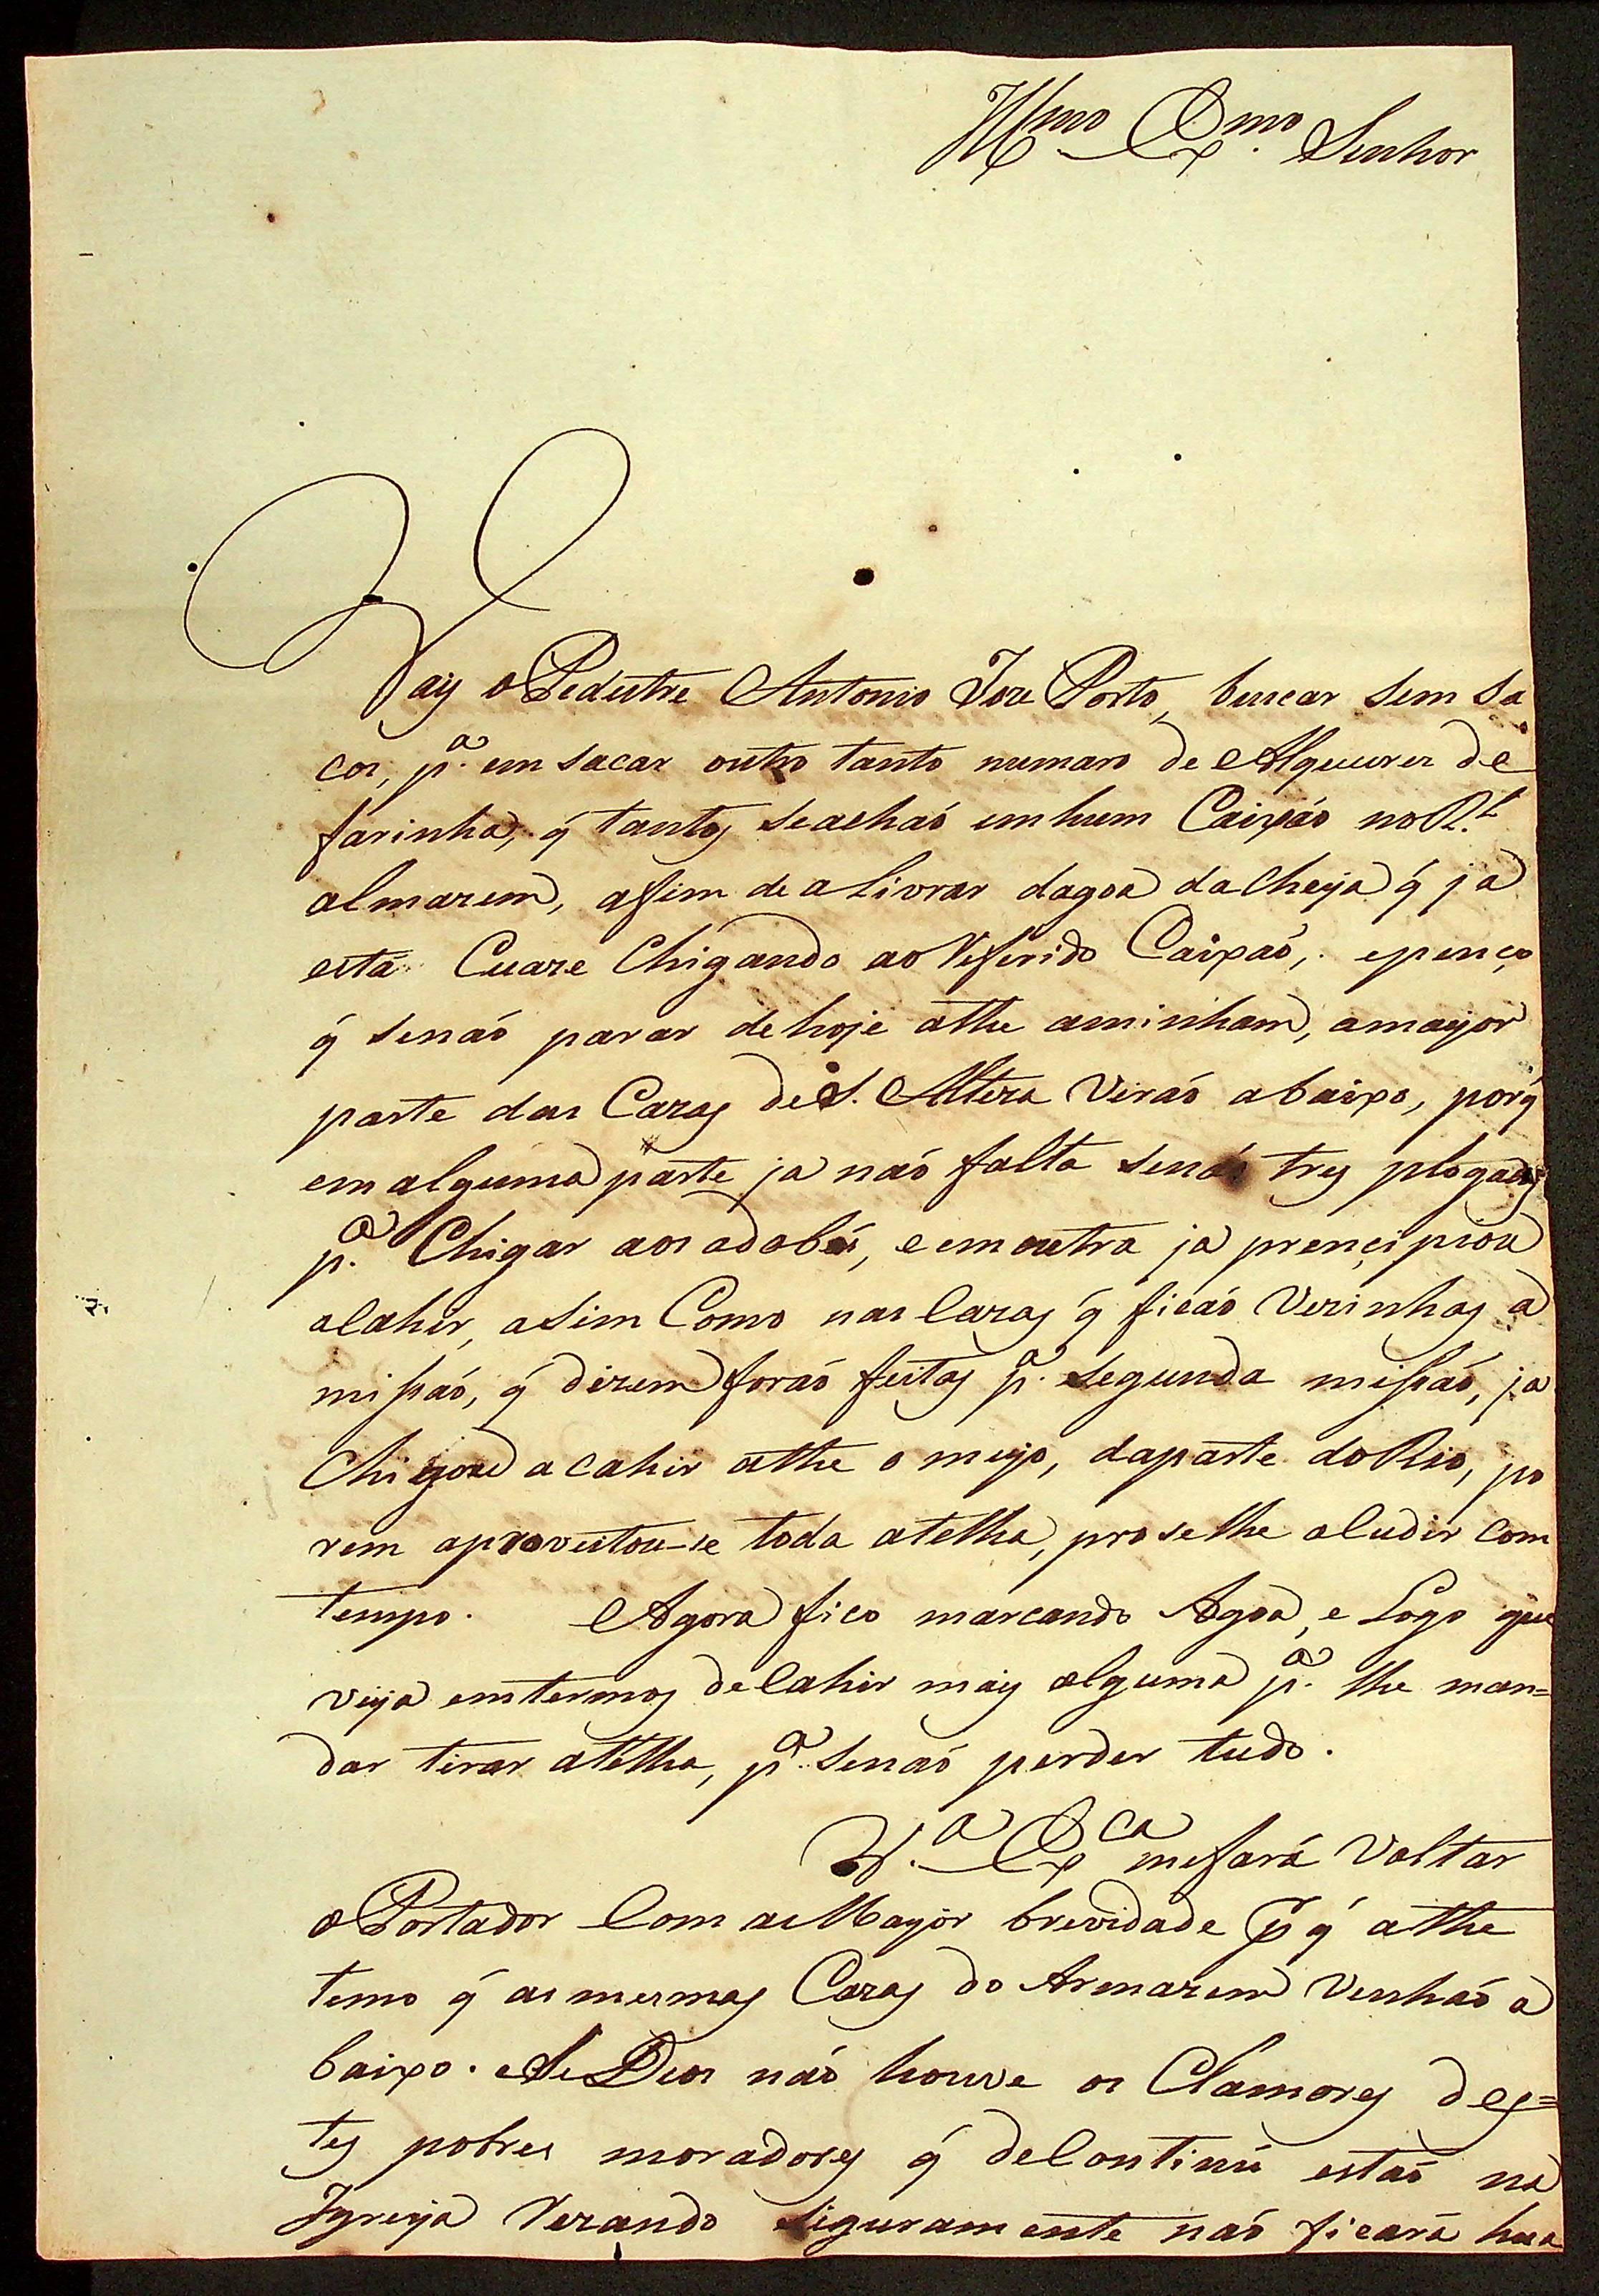 Illmo. Exmo. Senhor
Vay o Pedestre Antonio Joze Porto, buscar sem sa
cos, pa. em sacar outro tanto numaro de Alqueires de
farinha, q̃ tantos seachaó em hum Caixaó no Rl.
almazem, afim de a Livrar dagoa da Cheya q̃ já
está Cuaze Chigando ao Referido Caixaó, epenço
q̃ senaó parar de hoje athe aminham, amayor
parte das Cazas de S. Alteza Viraó abaixo, porq̃
em alguma parte ja naó falta senaó tres plogadas
pa. Chigar aos adobes, e em outra ja prençipiou
aCahir, asim Como nas Cazas q̃ ficaó Vezinhas a
missaó, q̃ dizem foraó feitas pa. Segunda missaó, ja
Chigou a cahir athe o meyo, daparte do Rio, po
rem aproveitou-se toda atelha, pro selhe aCudir com
tempo. Agora fico marcando Agoa, e Logo que
veya emtermos deCahir mais alguma pa. lhe man=
dar tirar atelha, pa. senaó perder tudo.
V.a Exca mefará Voltar
o Portador Com a Mayor brevidade p q̃ athe
temo q̃ as mesmas Cazas do Armazem Venhaó a
baixo. Se Deos náo houve os Clamores des=
tes pobres moradores q̃ deContinú estaó na
Igreija Rezando siguramente naó ficará hua